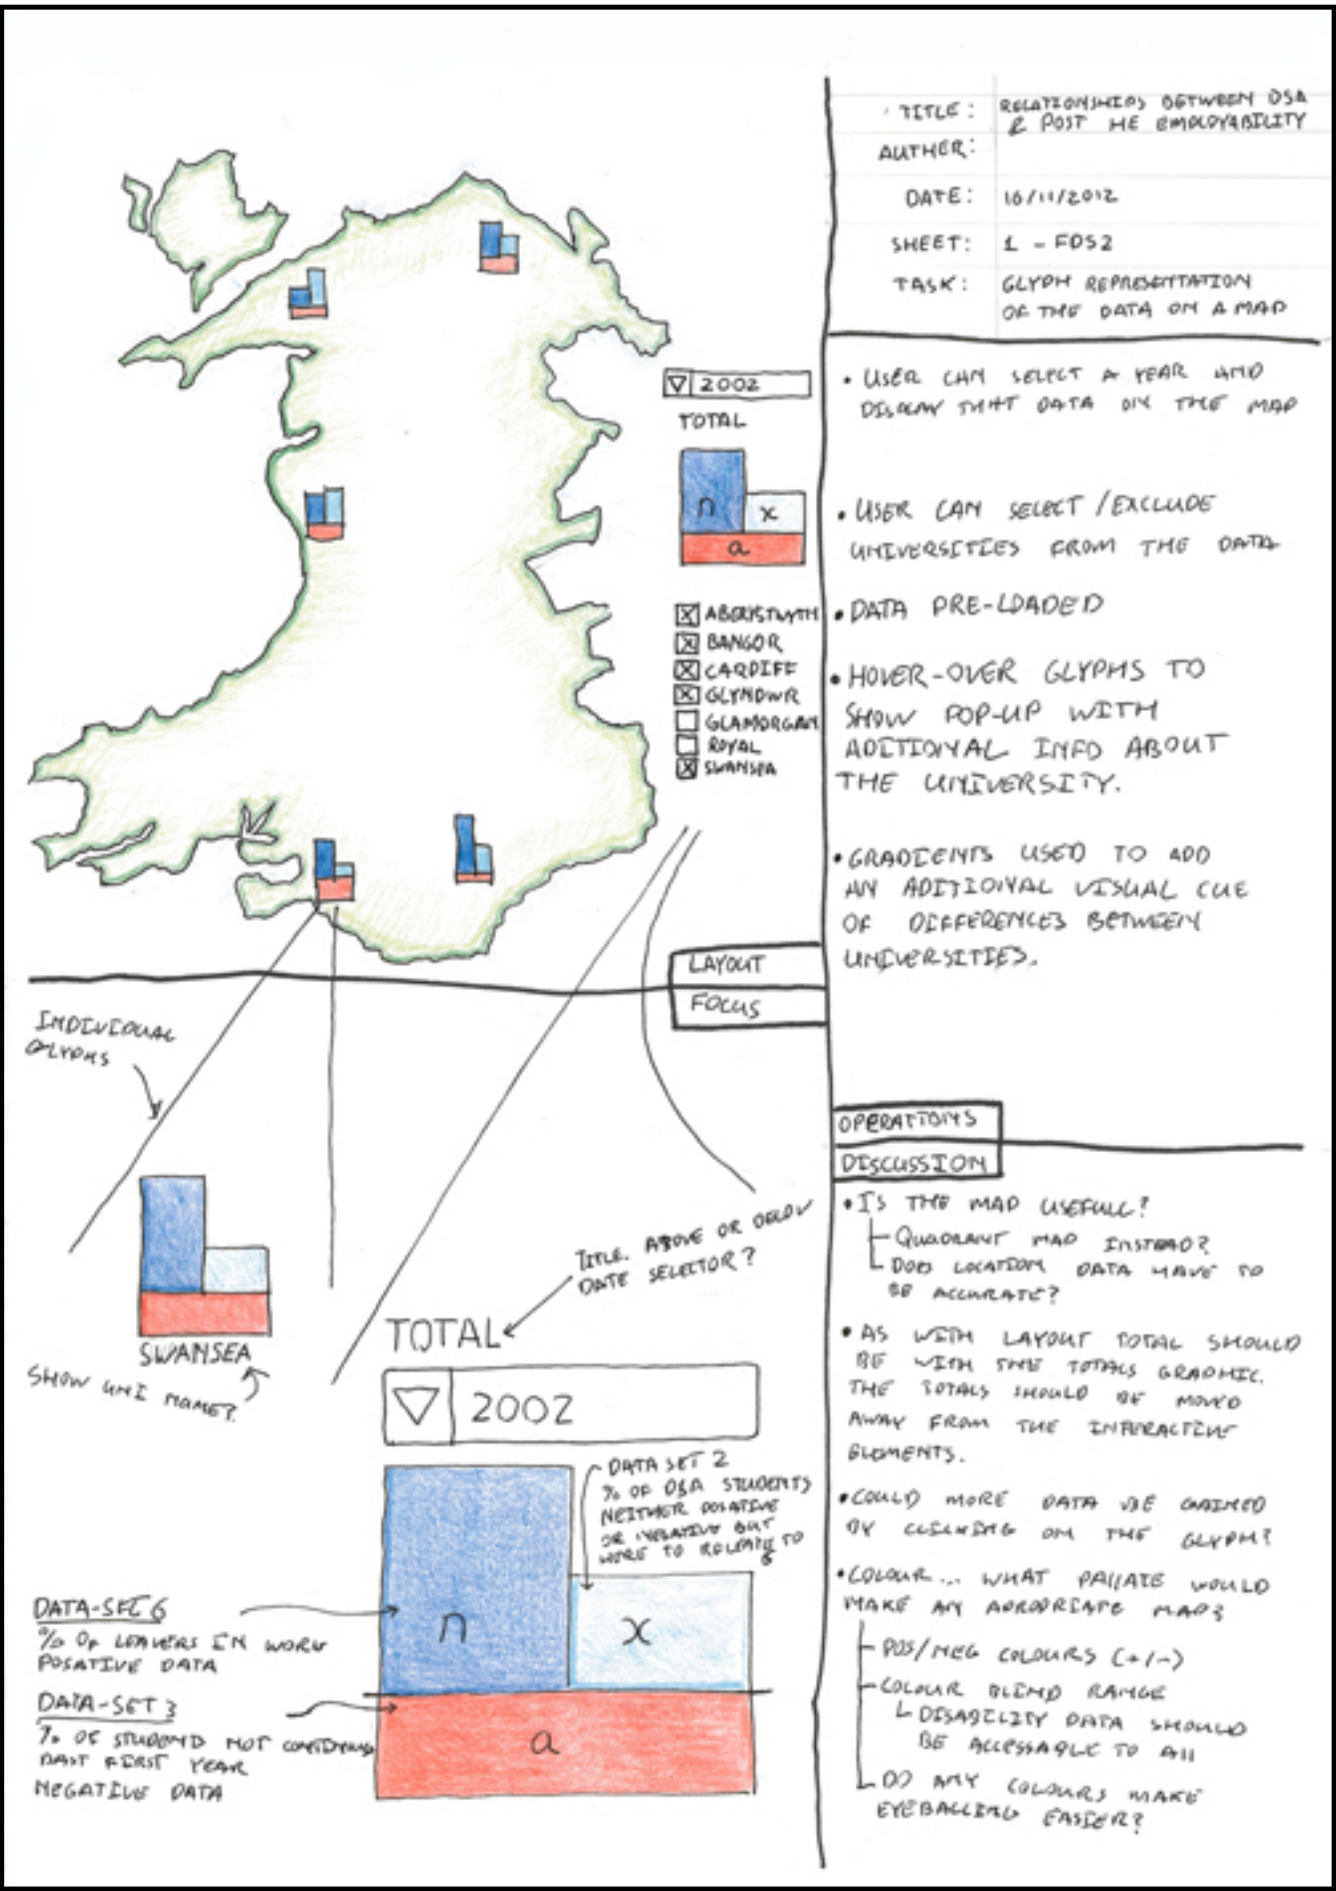 TITLE: RELATIONSHIPS BETWEEN DSA
& POST HE EMPLOYABILITY
AUTHER:
DATE: 16/11/2012
SHEET: 1 - FDS2
TASK: GLYPH REPRESENTATION
OF THE DATA ON A MAP
2002
TOTAL
n
x
a
ABERYSTWYTH
BANGOR
CARDIFF
GLYNDWR
GLAMORGAN
ROYAL
SWANSEA
LAYOUT
FOCUS
• USER CAN SELECT A YEAR AND
DISPLAY THAT DATA ON THE MAP
• USER CAN SELECT / EXCLUDE
UNIVERSITIES FROM THE DATA
• DATA PRE-LOADED
• HOVER-OVER GLYPHS TO
SHOW POP-UP WITH
ADITIONAL INFO ABOUT
THE UNIVERSITY.
• GRADIENTS USED TO ADD
AN ADITIONAL VISUAL CUE
OF DIFFERENCES BETWEEN
UNIVERSITIES.
OPERATIONS
DISCUSSION
INDIVIDUAL
GLYPHS
SWANSEA
SHOW UNI NAME?
TITLE. ABOVE OR BELOW
DATE SELECTOR?
TOTAL
2002
DATA SET 2
% OF DSA STUDENTS
NEITHER POSATIVE
OR NEGATIVE BUT
TO
6
n
x
a
DATA-SET 6
% OF LEAVERS IN WORK
POSATIVE DATA
DATA-SET 3
% OF STUDENTS NOT CONTINUING
PAST FIRST YEAR
NEGATIVE DATA
• IS THE MAP USEFULL?
QUADRANT MAP INSTEAD?
DOES LOCATION DATA HAVE TO
BE ACCURATE?
• AS WITH LAYOUT TOTAL SHOULD
BE WITH THE TOTALS GRAPHIC.
THE TOTALS SHOULD BE MOVED
AWAY FROM THE INTERACTIVE
ELEMENTS.
• COULD MORE DATA BE GAINED
BY CLICKING ON THE GLYPH?
• COLOUR... WHAT PALLATE WOULD
MAKE AN APROPRIATE MAP?
POS/NEG COLOURS (+/-)
COLOUR BLIND RANGE
DISABILITY DATA SHOULD
BE ACCESSABLE TO All
DO ANY COLOURS MAKE
EYEBALLING EASIER?